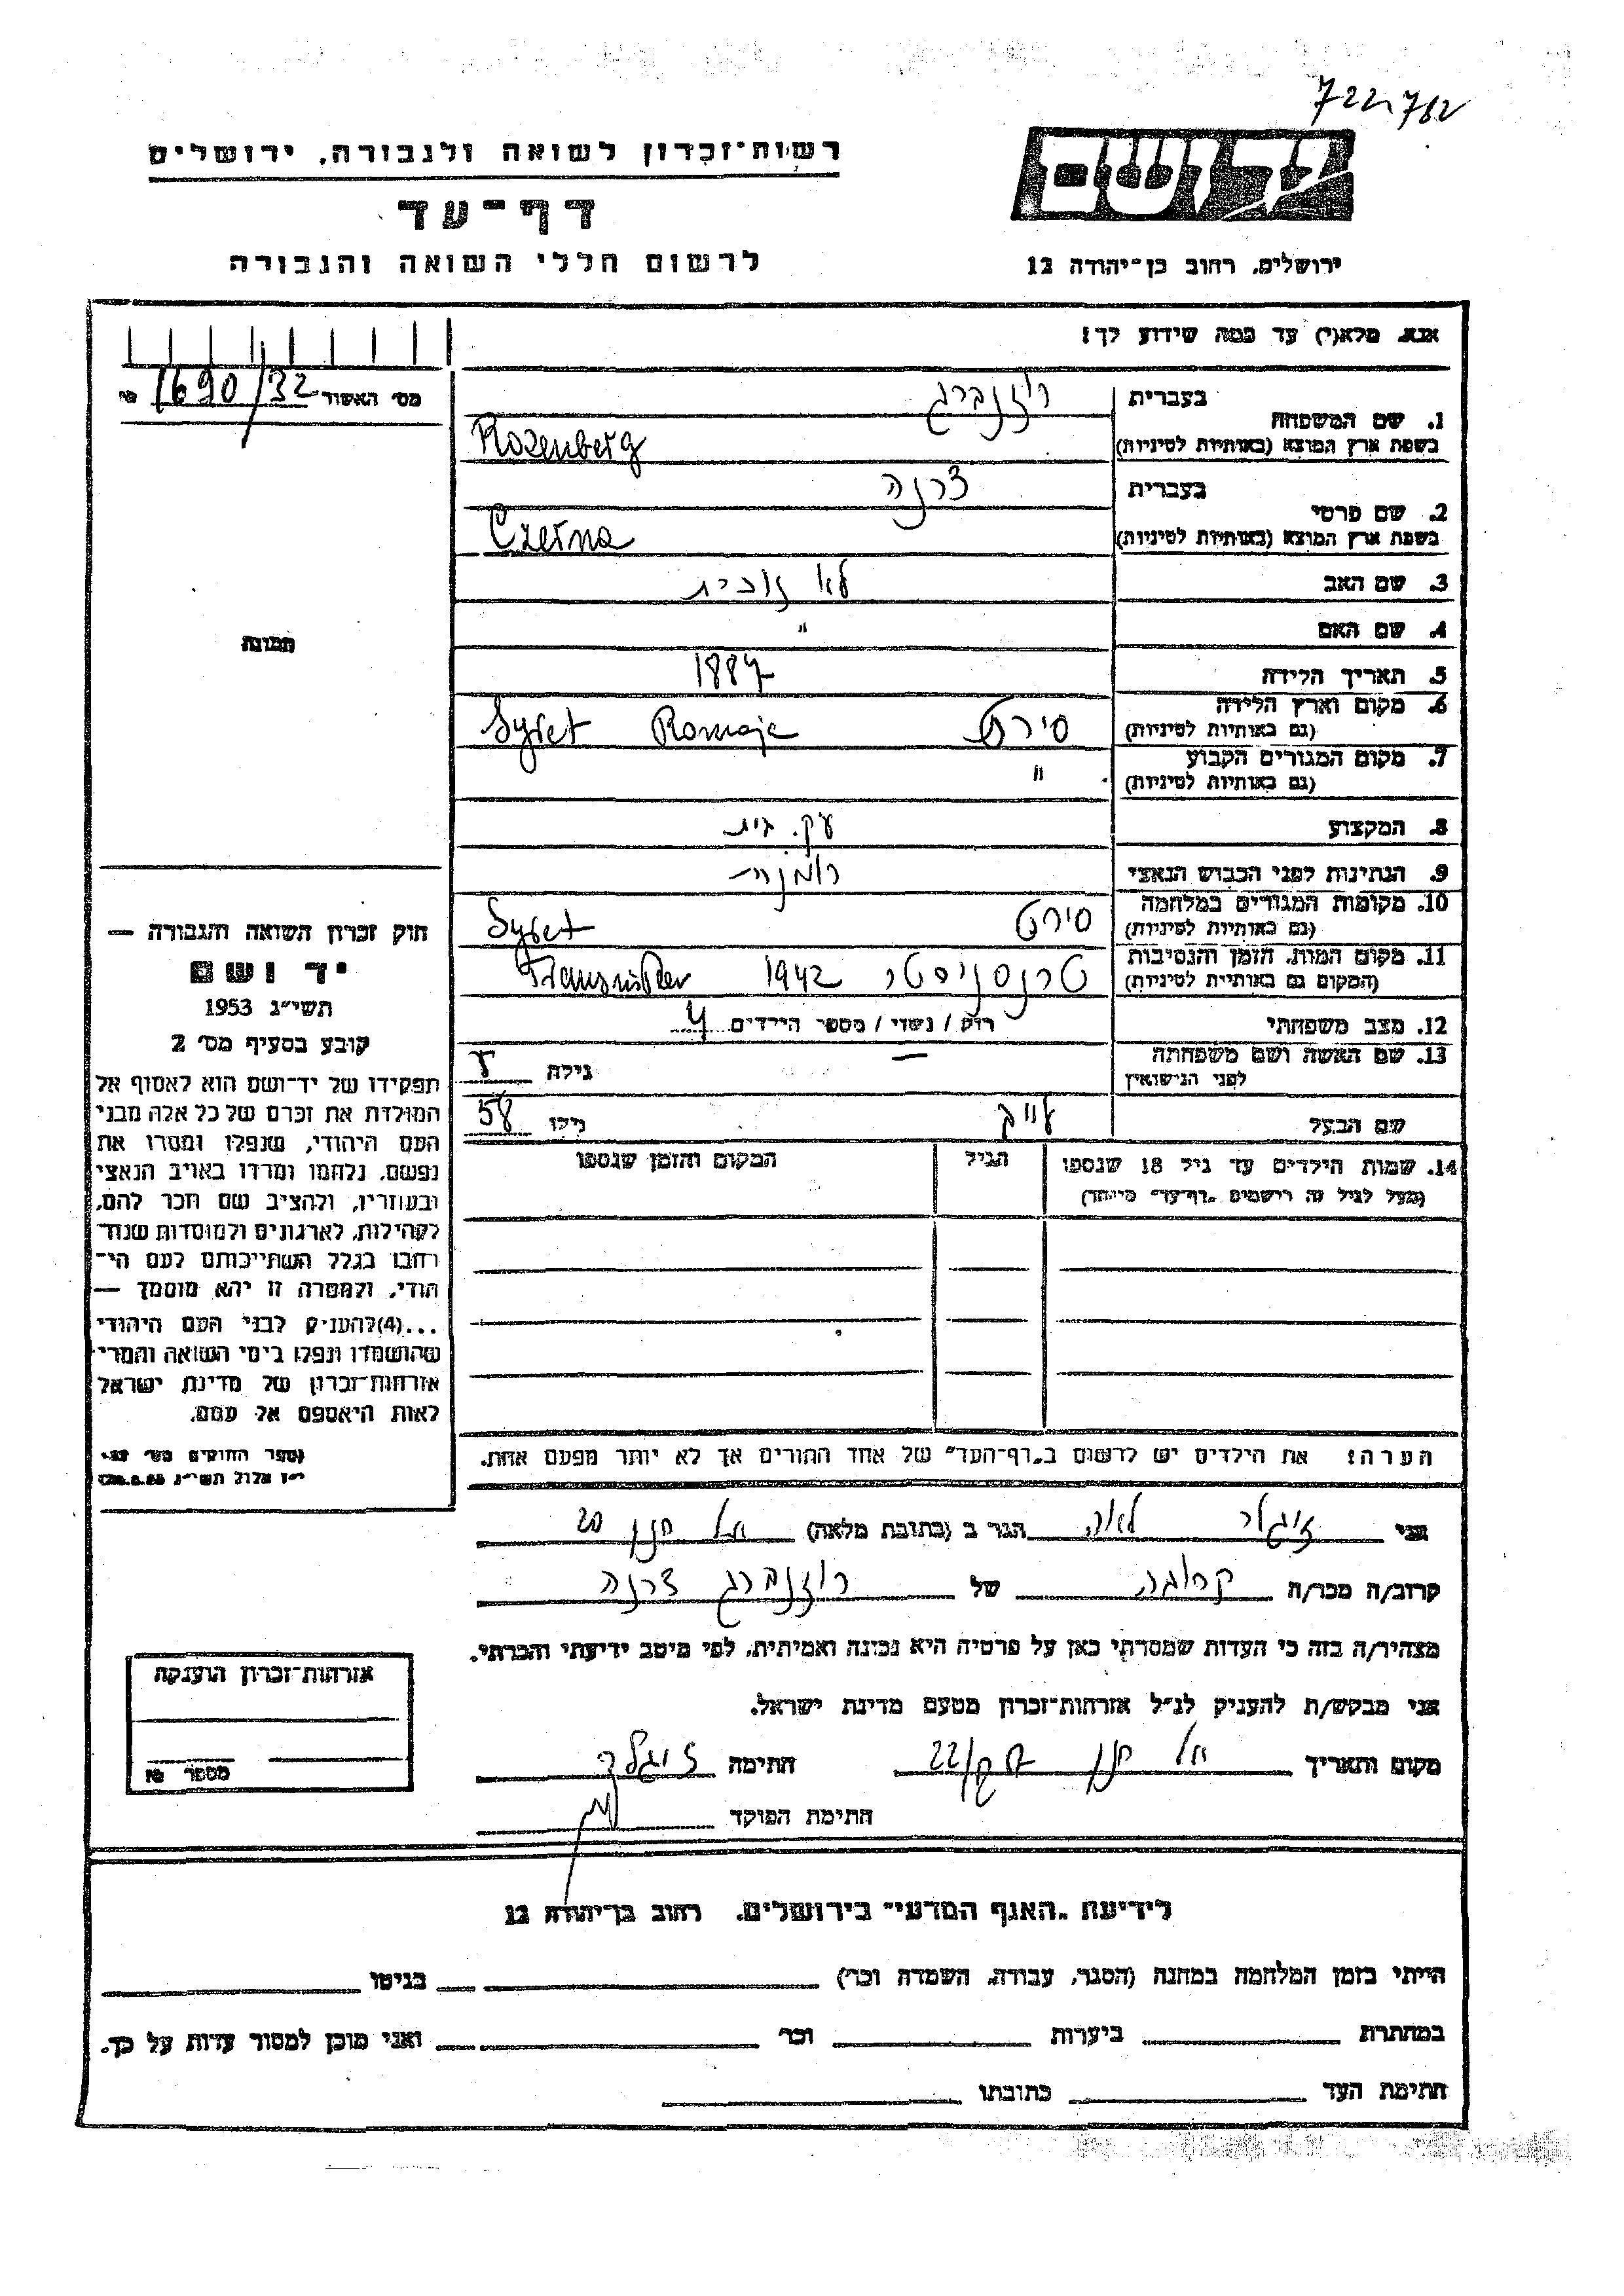 722,762
רשות־זכרון לשואה ולגבורה, ירושלים
יד ושם
דף־עד
לרשום חללי השואה והגבורה
ירושלים, רחוב בן־יהודה 12
אנא, מלא(י) עד כמה שידוע לך!
מס' האשור 1690/32 №
בעברית רוזנברג
1. שם המשפחה
בשפת ארץ המוצא (באותיות לטיניות) Rozenberg
בעברית צרנה
2. שם פרטי
בשפת ארץ המוצא (באותיות לטיניות) Czerna
3. שם האב לא זוכרת
4. שם האם "
תמונה
5. תאריך הלידה 1884
6. מקום וארץ הלידה סירט Romaje Syret
(גם באותיות לטיניות)
7. מקום המגורים הקבוע "
(גם באותיות לטיניות)
8. המקצוע עק. בית
9. הנתינות לפני הכבוש הנאצי רומניה
10. מקומות המגורים במלחמה סירט Syret
(גם באותיות לטיניות)
11. מקום המות, הזמן והנסיבות טרנסניסטר 1942
(המקום גם באותיות לטיניות)
12. מצב משפחתי רוק / נשוי / מספר הילדים 4
13. שם האשה ושם משפחתה – גילה
לפני הנישואין
שם הבעל גילו 58
14. שמות הילדים עד גיל 18 שנספו הגיל המקום והזמן שנספו
(מעל לגיל זה רושמים "דף־עד" מיוחד)
הערה: את הילדים יש לרשום ב"דף־העד" של אחד ההורים אך לא יותר מפעם אחת.
חוק זכרון השואה והגבורה —
יד ושם
תשי"ג 1953
קובע בסעיף מס' 2
תפקידו של יד־ושם הוא לאסוף אל
המולדת את זכרם של כל אלה מבני
העם היהודי, שנפלו ומסרו את
נפשם, נלחמו ומרדו באויב הנאצי
ובעוזריו, ולהציב שם וזכר להם,
לקהילות, לארגונים ולמוסדות שנח־
רבו בגלל השתייכותם לעם הי־
הודי, ולמטרה זו יהא מוסמך —
...(4)להעניק לבני העם היהודי
שהושמדו ונפלו בימי השואה והמרי־
אזרחות־זכרון של מדינת ישראל
לאות היאספם אל עמם.
(ספר החוקים מס' 132
י"ז אלול תשי"ג 28.8.53)
אני ציגלר לאה הגר ב (כתובת מלאה) אל חנן 20
קרוב/ה מכר/ה קרובה של רוזנברג צרנה
מצהיר/ה בזה כי העדות שמסרתי כאן על פרטיה היא נכונה ואמיתית, לפי מיטב ידיעתי והכרתי.
אני מבקש/ת להעניק לנ"ל אזרחות־זכרון מטעם מדינת ישראל.
מקום ותאריך אל חנן חתימה ציגלר
חתימת הפוקד
אזרחות־זכרון הוענקה
מספר №
לידיעת "האגף המדעי" בירושלים, רחוב בן־יהודה 12
הייתי בזמן המלחמה במחנה (הסגר, עבודה, השמדה וכו') בגיטו
במחתרת ביערות וכו' ואני מוכן למסור עדות על כך.
חתימת העד כתובתו